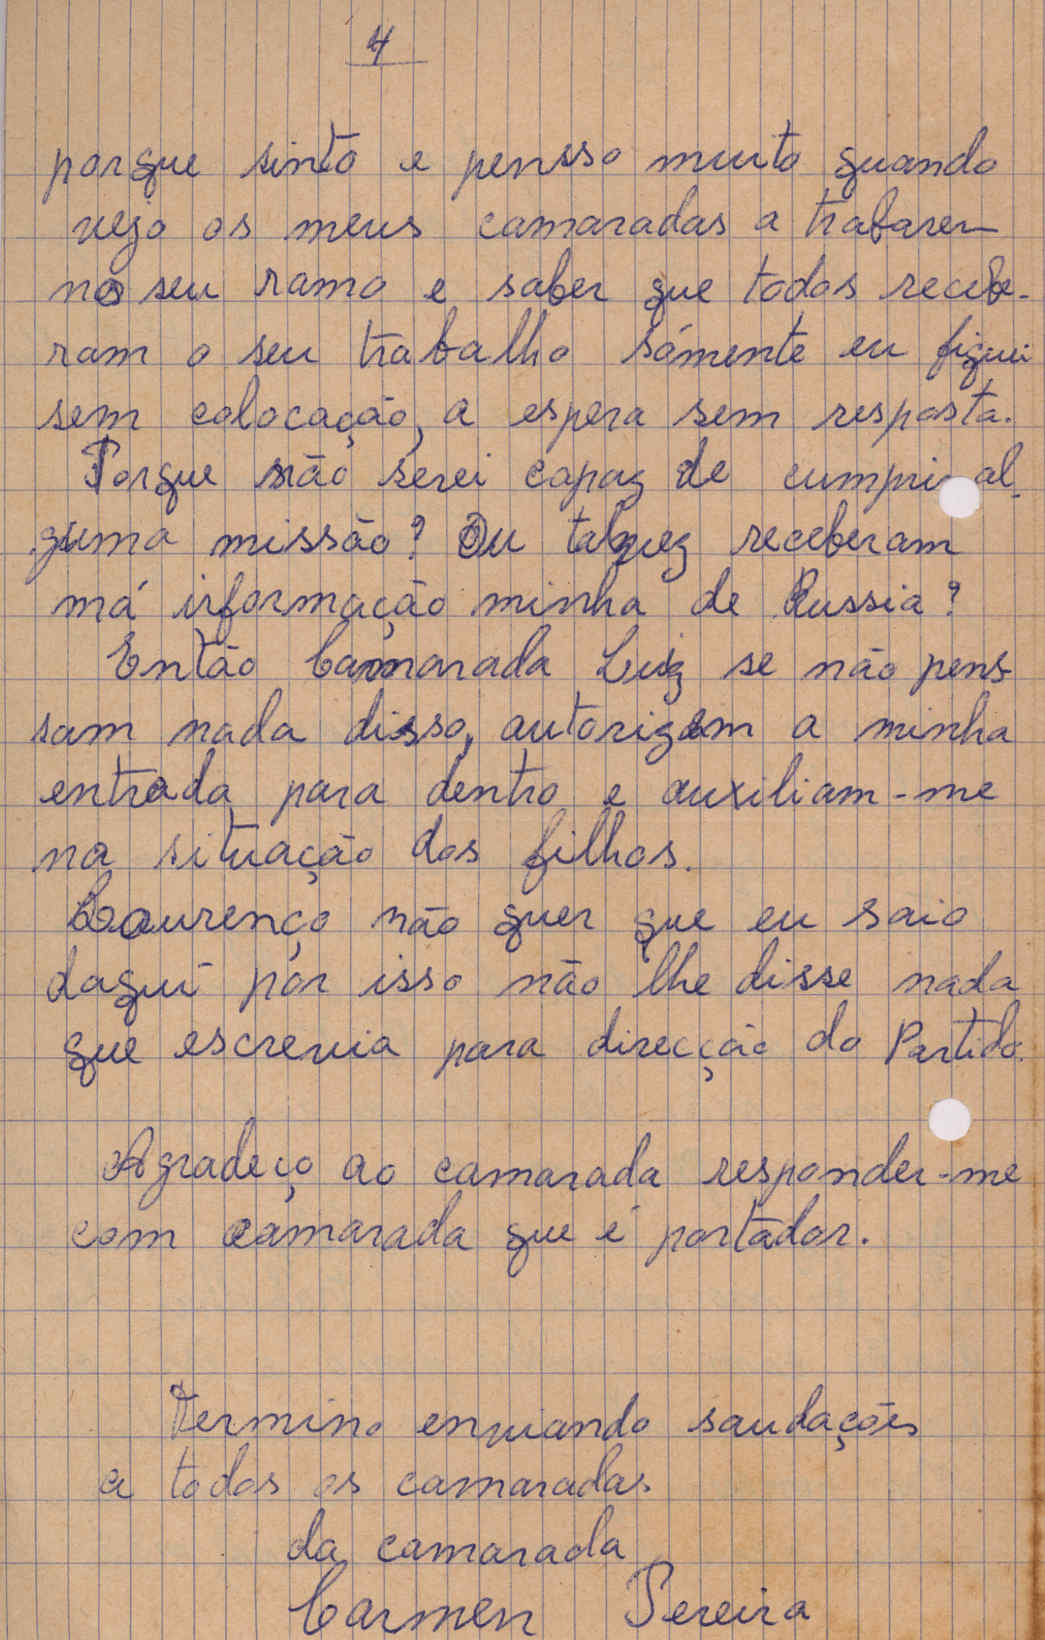 4
porque sinto e pensso muito quando
vejo os meus camaradas a trabarem
no seu ramo e saber que todos recebe-
ram o seu trabalho sómente eu fiquei
sem colocação, a espera sem resposta.
Porque não serei capaz de cumprir al-
guma missão? Ou talvez receberam
má informação minha de Russia?
Então Camarada Luiz se não pens-
sam nada disso, autorizem a minha
entrada para dentro e auxiliam-me
na situação dos filhos.
Lourenço não quer que eu saio
daqui por isso não lhe disse nada
que escrevia para direcção do Partido.
Agradeço ao camarada responder-me
com camarada que é portador.
Termino enviando saudações
a todos os camaradas.
da camarada
Carmen Pereira